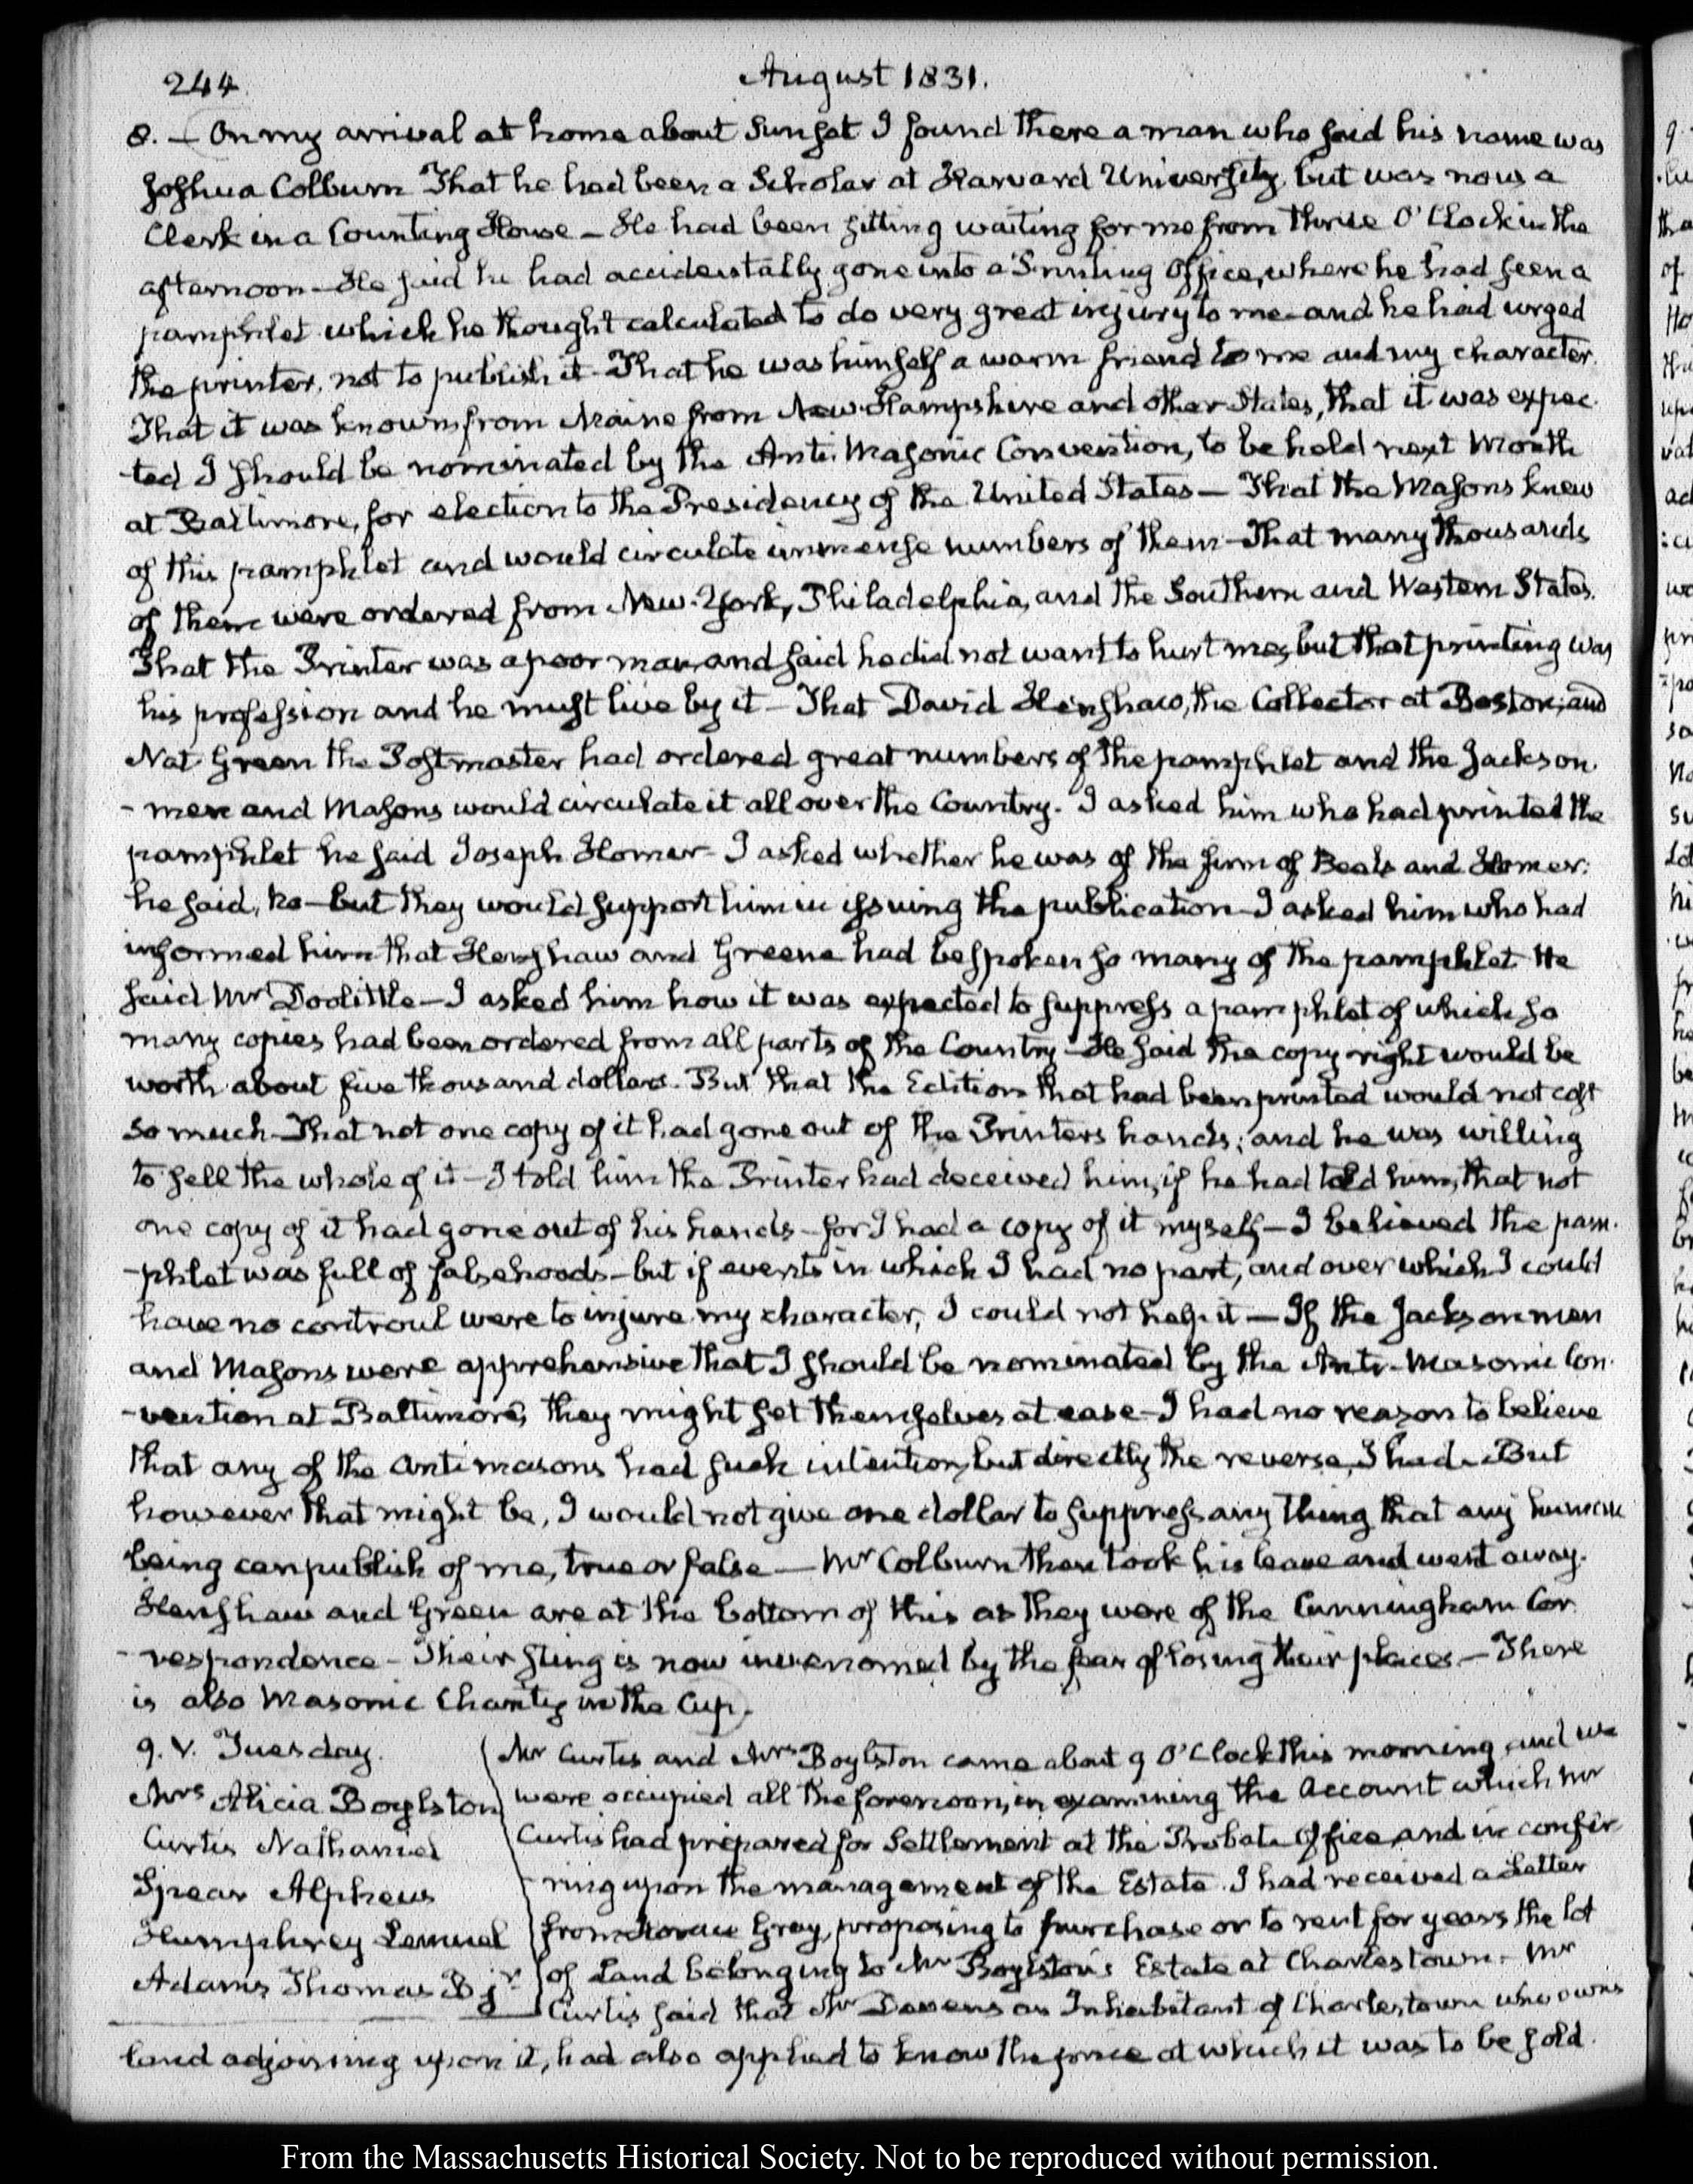 244.
August 1831.
8. — On my arrival at home about Sunset I found there a man who said his name was
Joshua Colburn That he had been a Scholar at Harvard University, but was now a
Clerk in a Counting House — He had been sitting waiting for me from three O'Clock in the
afternoon — He said he had accidentally gone into a Printing Office, where he had seen a
pamphlet which he thought calculated to do very great injury to me and he had urged
the printer, not to publish it — That he was himself a warm friend to me and my character.
That it was known from Maine from New-Hampshire and other States, that it was expec-
-ted I should be nominated by the Anti-Masonic Convention, to be held next Month
at Baltimore, for election to the Presidency of the United States — That the Masons knew
of this pamphlet and would circulate immense numbers of them — That many thousands
of them were ordered from New-York, Philadelphia, and the Southern and Western States.
That the Printer was a poor man, and said he did not want to hurt me, but that printing was
his profession and he must live by it — That David Henshaw, the Collector at Boston, and
Nat Green the Postmaster had ordered great numbers of the pamphlet and the Jackson-
-men and Masons would circulate it all over the Country. I asked him who had printed the
pamphlet he said Joseph Homer — I asked whether he was of the firm of Beals and Homer:
he said, no — but they would support him in issuing the publication — I asked him who had
informed him that Henshaw and Greene had bespoken so many of the pamphlet He
said Mr Doolittle — I asked him how it was expected to suppress a pamphlet of which so
many copies had been ordered from all parts of the Country — He said the copy-right would be
worth about five thousand dollars. But that the Edition that had been printed would not cost
so much — That not one copy of it had gone out of the Printers hands; and he was willing
to sell the whole of it — I told him the Printer had deceived him, if he had told him, that not
one copy of it had gone out of his hands — for I had a copy of it myself — I believed the pam-
-phlet was full of falsehoods — but if events in which I had no part, and over which I could
have no controul were to injure my character, I could not help it — If the Jackson men
and Masons were apprehensive that I should be nominated by the Anti-Masonic Con-
-vention at Baltimore, they might set themselves at ease — I had no reason to believe
that any of the Antimasons had such intention, but directly the reverse, I had — But
however that might be, I would not give one dollar to suppress any thing that any human
being can publish of me, true or false — Mr Colburn then took his leave and went away.
Henshaw and Green are at the bottom of this as they were of the Cunningham Cor-
-respondence — Their sting is now invenomed by the fear of losing their places — There
is also Masonic Charity in the Cup.
9. V. Tuesday.
Mrs Alicia Boylston
Curtis Nathaniel
Spear Alpheus
Humphrey Lemuel
Adams Thomas B jr
Mr Curtis and Mrs Boylston came about 9 O'Clock this morning, and we
were occupied all the forenoon, in examining the Account which Mr
Curtis had prepared for Settlement at the Probate Office, and in confer-
-ring upon the management of the Estate. I had received a Letter
from Horace Gray, proposing to purchase or to rent for years the lot
of Land belonging to Mr Boylston's Estate at Charlestown — Mr
Curtis said that Mr Devens an Inhabitant of Charlestown who owns
land adjoining upon it, had also applied to know the price at which it was to be sold.
From the Massachusetts Historical Society. Not to be reproduced without permission.